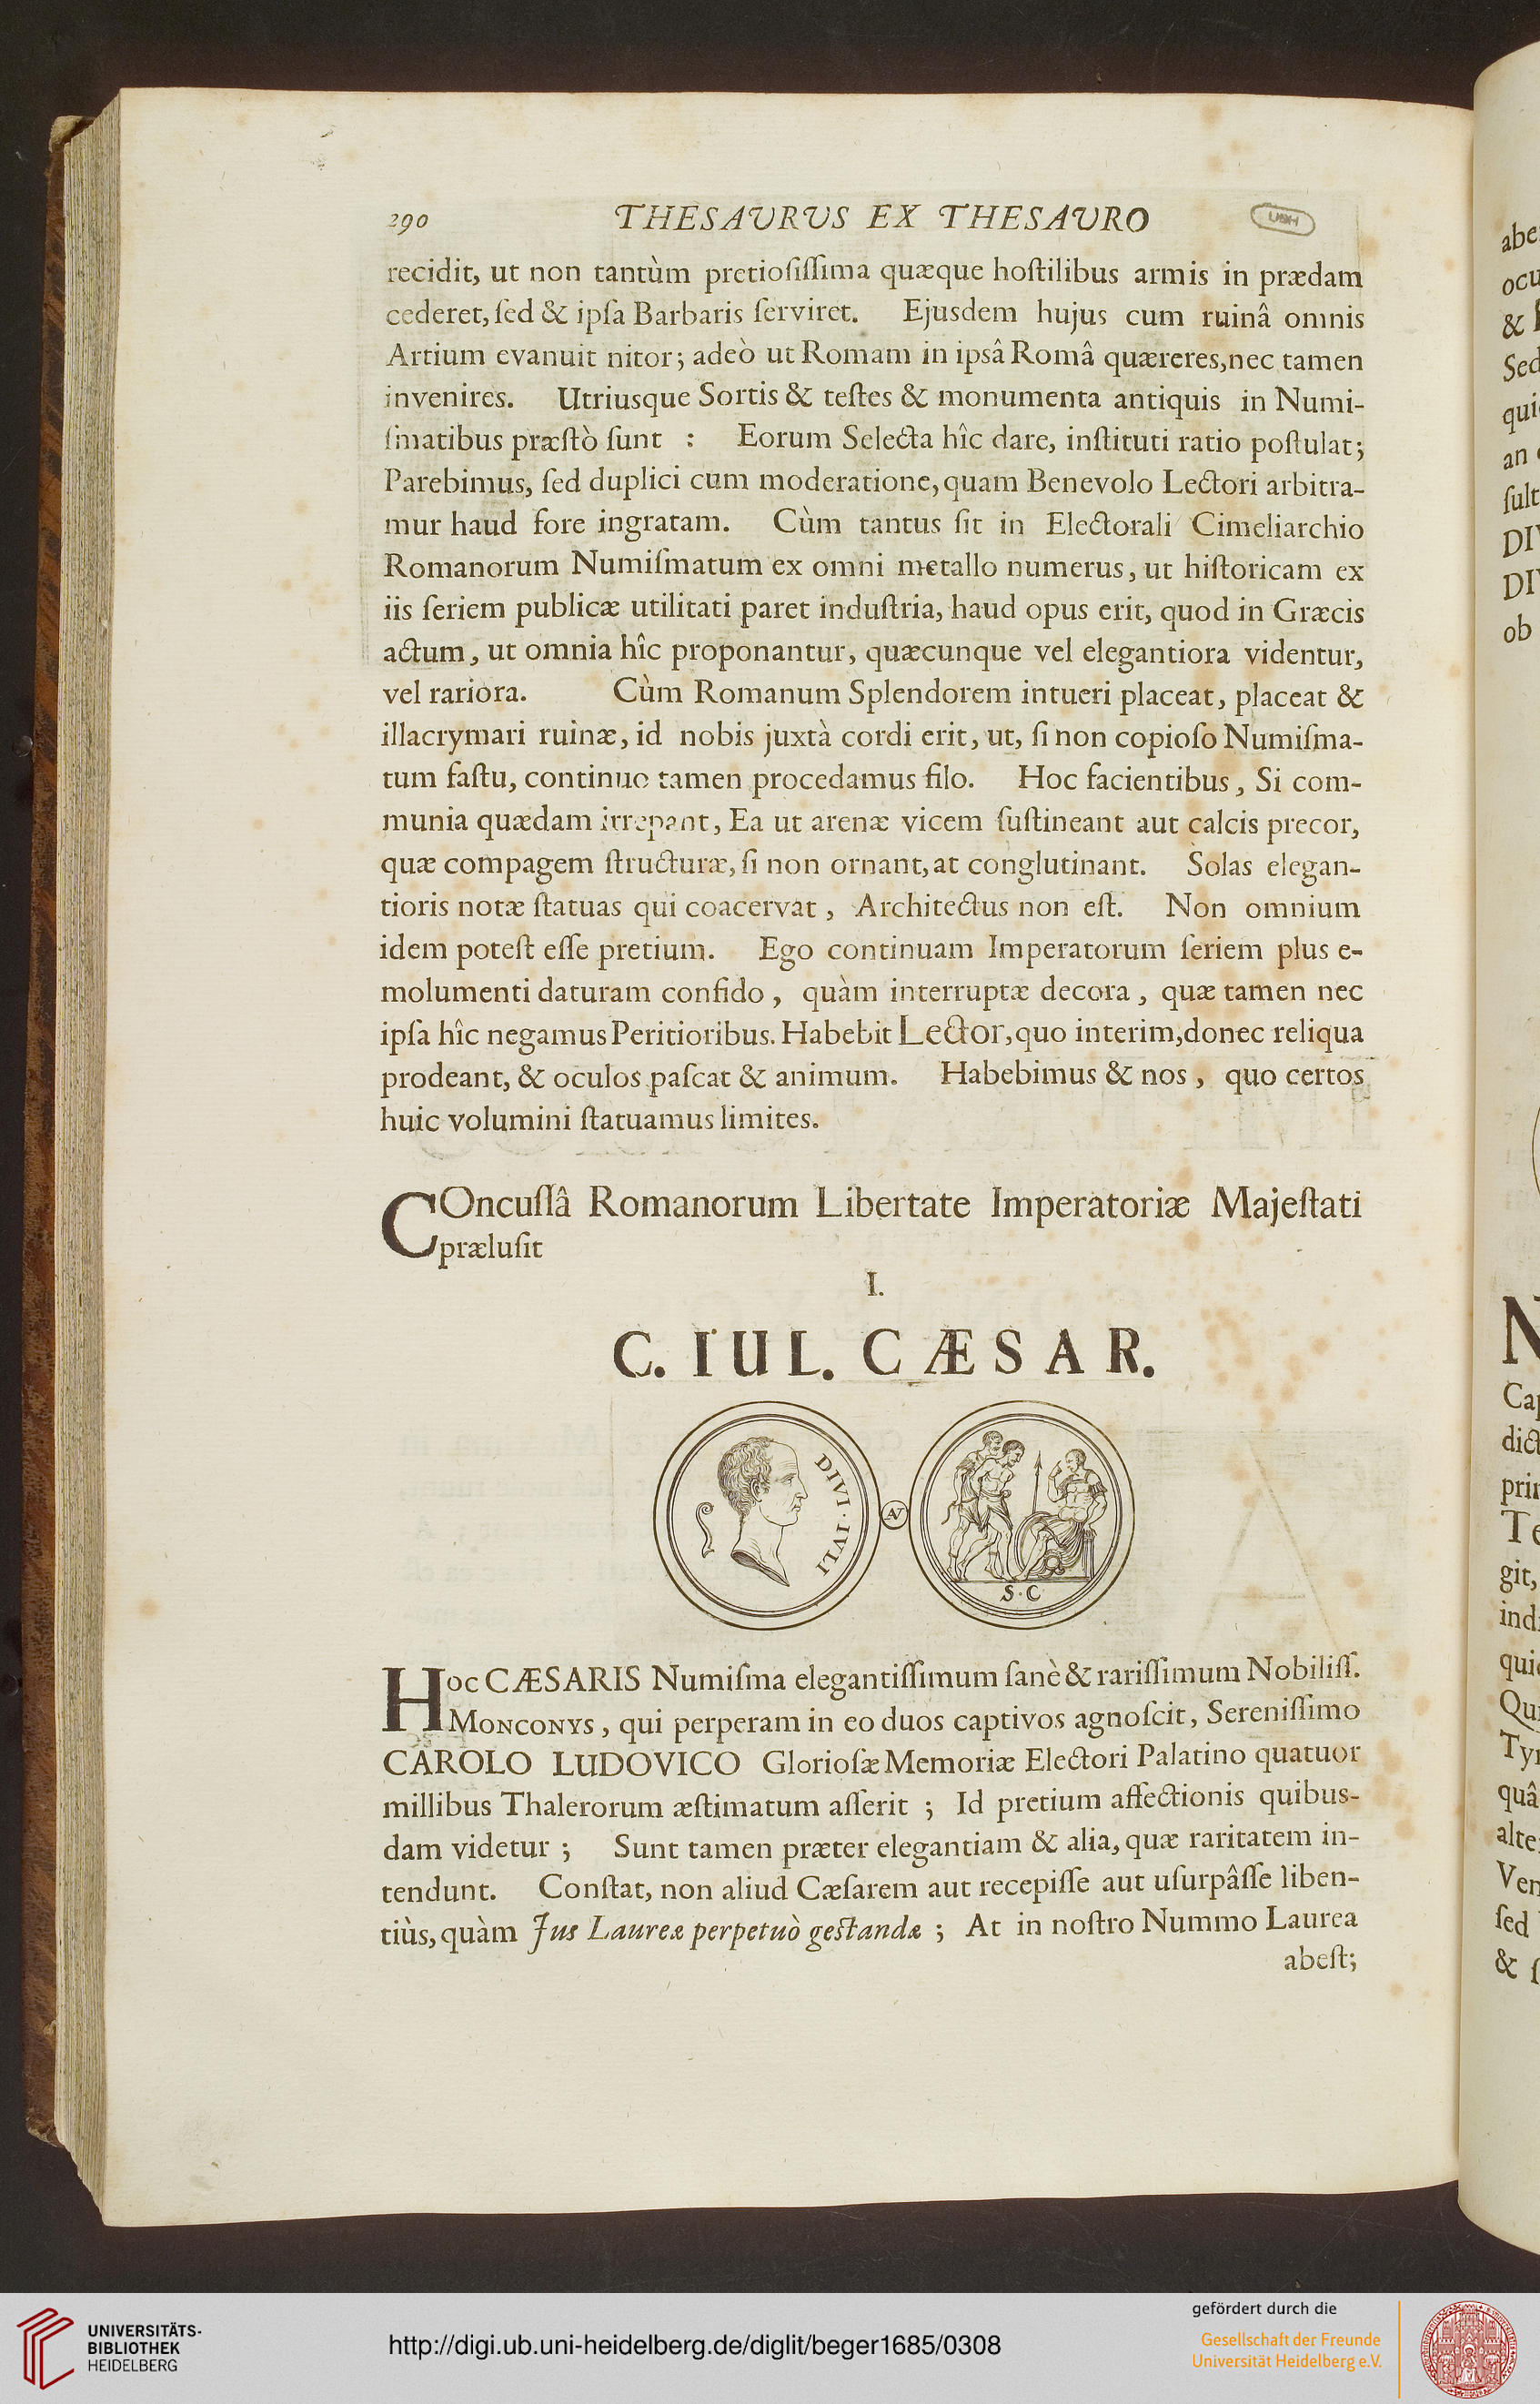 290 THESAVRVS EX THESAVRO
UBH
recidit, ut non tantùm pretiosissima quæque hostilibus armis in prædam
cederet, sed & ipsa Barbaris serviret. Ejusdem hujus cum ruinâ omnis
Artium evanuit nitor; adeò ut Romam in ipsâ Româ quæreres, nec tamen
invenires. Utriusque Sortis & testes & monumenta antiquis in Numi-
smatibus præstò sunt : Eorum Selecta hîc dare, instituti ratio postulat;
Parebimus, sed duplici cum moderatione, quam Benevolo Lectori arbitra-
mur haud fore ingratam. Cùm tantus sit in Electorali Cimeliarchio
Romanorum Numismatum ex omni metallo numerus, ut historicam ex
iis seriem publicæ utilitati paret industria, haud opus erit, quod in Græcis
actum, ut omnia hîc proponantur, quæcunque vel elegantiora videntur,
vel rariora. Cùm Romanum Splendorem intueri placeat, placeat &
illacrymari ruinæ, id nobis juxtà cordi erit, ut, si non copioso Numisma-
tum fastu, continuo tamen procedamus filo. Hoc facientibus, Si com-
munia quædam irrepant, Ea ut arenæ vicem sustineant aut calcis precor,
quæ compagem structuræ, si non ornant, at conglutinant. Solas elegan-
tioris notæ statuas qui coacervat, Architectus non est. Non omnium
idem potest esse pretium. Ego continuam Imperatorum seriem plus e-
molumenti daturam confido, quàm interruptæ decora, quæ tamen nec
ipsa hîc negamus Peritioribus. Habebit Lector, quo interim, donec reliqua
prodeant, & oculos pascat & animum. Habebimus & nos, quo certos
huic volumini statuamus limites.
COncussâ Romanorum Libertate Imperatoriæ Majestati
prælusit
I.
C. IUL. CÆSAR.
DIVI · IVLI
S · C
Hoc CÆSARIS Numisma elegantissimum sanè & rarissimum Nobiliss.
MONCONYS, qui perperam in eo duos captivos agnoscit, Serenissimo
CAROLO LUDOVICO Gloriosæ Memoriæ Electori Palatino quatuor
millibus Thalerorum æstimatum asserit ; Id pretium affectionis quibus-
dam videtur ; Sunt tamen præter elegantiam & alia, quæ raritatem in-
tendunt. Constat, non aliud Cæsarem aut recepisse aut usurpâsse liben-
tiùs, quàm Jus Laureæ perpetuò gestandæ ; At in nostro Nummo Laurea
abest;
abe
ocu
&
Sed
qui
an
sult
DI
DI
ob
N
Cap
dict
pri
Te
git,
ind
qui
Qu
Ty
quâ
alte
Ven
sed
&
UNIVERSITÄTS-
BIBLIOTHEK
HEIDELBERG
http://digi.ub.uni-heidelberg.de/diglit/beger1685/0308
gefördert durch die
Gesellschaft der Freunde
Universität Heidelberg e.V.